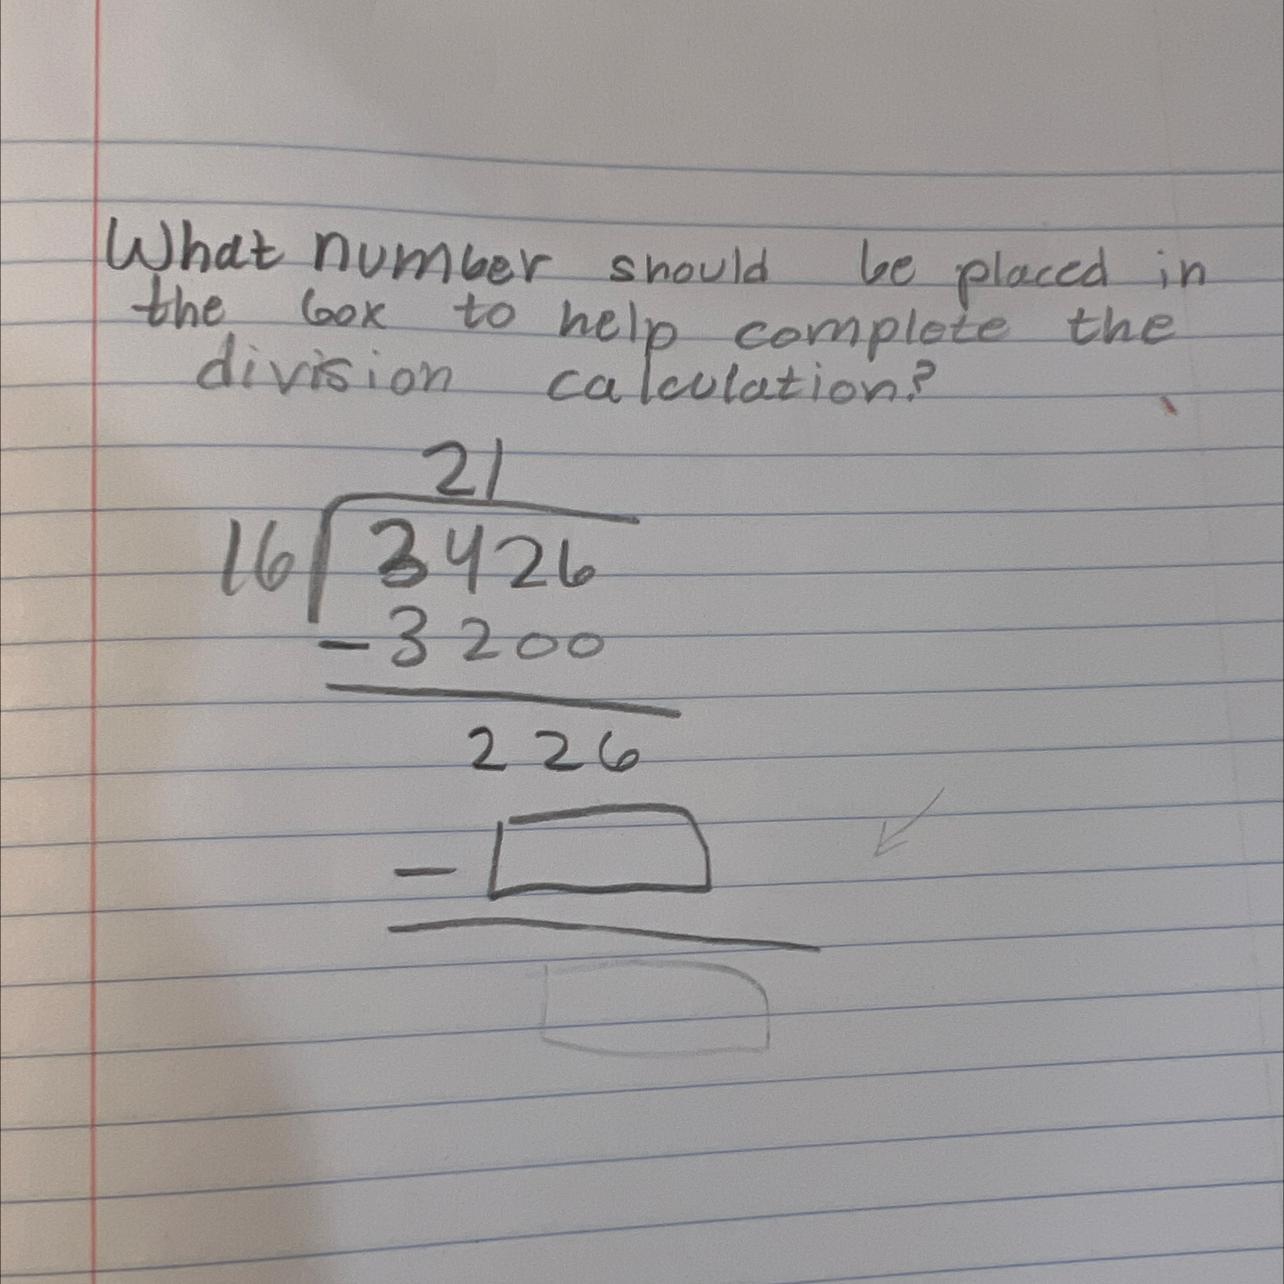 What number should be placed in
the box to help complete the
division calculation?
21
16 3426
- 3200
226
-